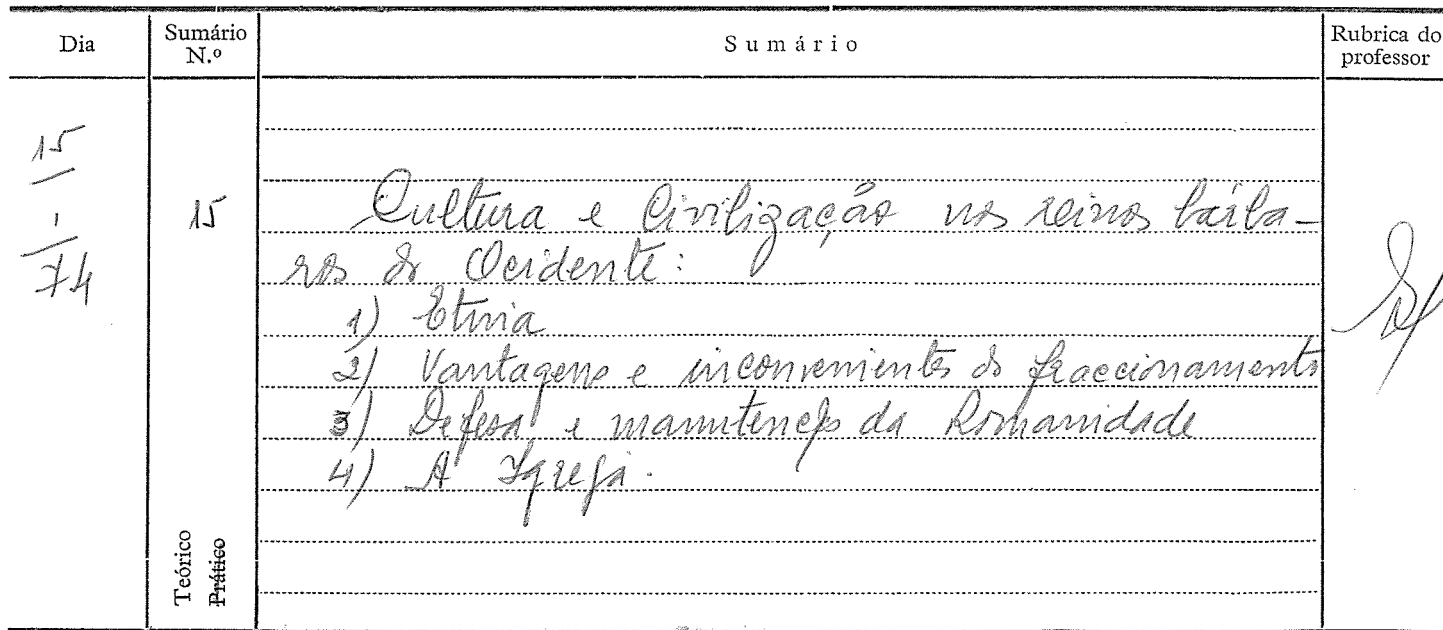 Dia
Sumário
N.º
Sumário
Rubrica do
professor
15
1
74
15
Cultura e Civilização nos reinos bárba-
ros do Ocidente:
1) Etnia
2) Vantagens e inconvenientes do fraccionamento
3) Defesa e manutenção da Romanidade
4) A Igreja.
Teórico
Prático